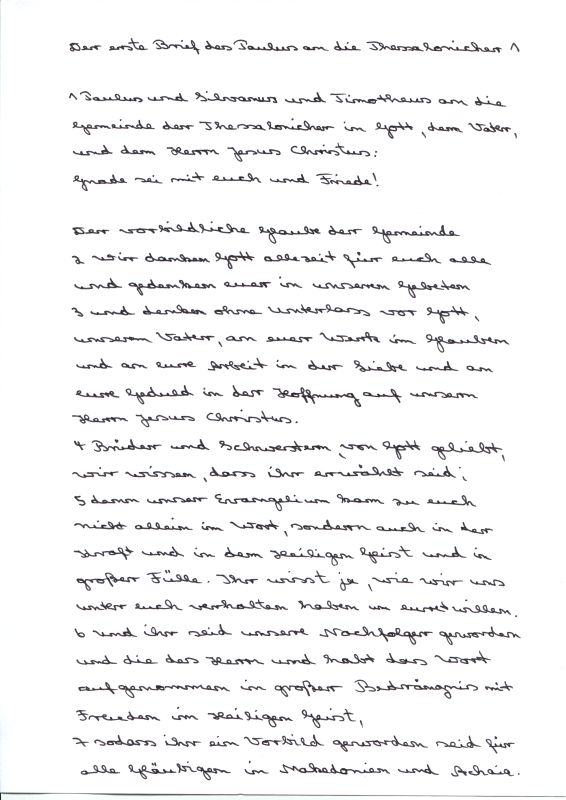 Der erste Brief des Paulus an die Thessalonicher 1
1 Paulus und Silvanus und Timotheus an die
Gemeinde der Thessalonicher in Gott, dem Vater,
und dem Herrn Jesus Christus:
Gnade sei mit euch und Friede!
Der vorbildliche Glaube der Gemeinde
2 Wir danken Gott allezeit für euch alle
und gedenken euer in unserem Gebeten
3 und denken ohne Unterlass vor Gott,
unserem Vater, an euer Werk im Glauben
und an eure Arbeit in der Liebe und an
eure Geduld in der Hoffnung auf unsern
Herrn Jesus Christus.
4 Brüder und Schwestern, von Gott geliebt,
wir wissen, dass ihr erwählt seid;
5 denn unser Evangelium kam zu euch
nicht allein im Wort, sondern auch in der
Kraft und in dem Heiligen Geist und in
großer Fülle. Ihr wisst ja, wie wir uns
unter euch verhalten haben um euretwillen.
6 Und ihr seid unsere Nachfolger geworden
und die des Herrn und habt das Wort
aufgenommen in großer Bedrängnis mit
Freuden im Heiligen Geist,
7 sodass ihr ein Vorbild geworden seid für
alle Gläubigen in Makedonien und Achaia.